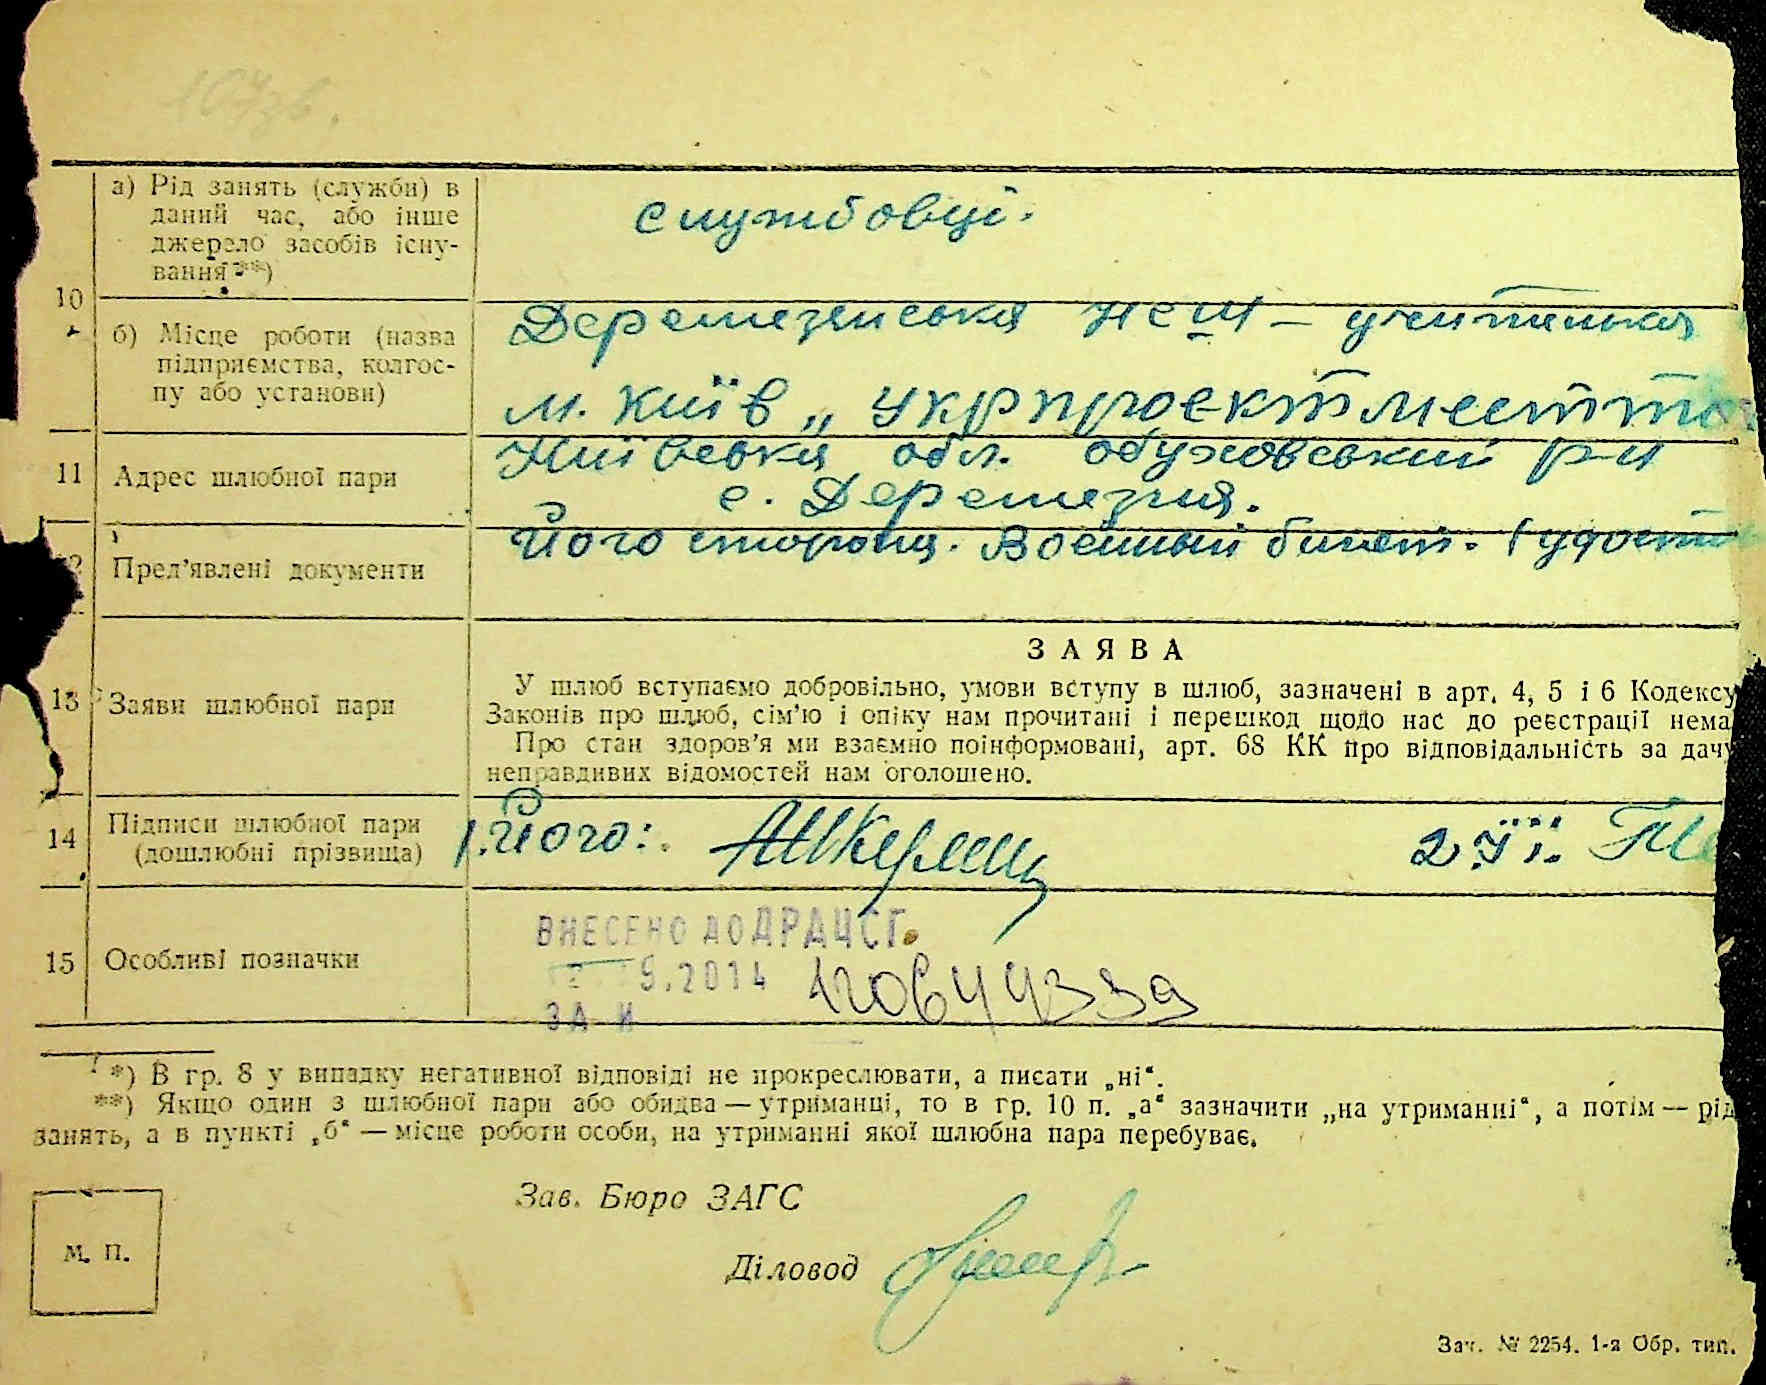 а) Рід занять (служби) в
даний час, або інше
джерело засобів існу-
вання **)
службовці.
10
б) Місце роботи (назва
підприємства, колгос-
пу або установи)
Деремезянська НСШ – учителька
м. Київ „Укрпроект
11
Адрес шлюбної пари
Київська обл. Обуховський р-н
с. Деремезня.
Пред’явлені документи
Його сторони. Военный билет.
13
Заяви шлюбної пари
ЗАЯВА
У шлюб вступаємо добровільно, умови вступу в шлюб, зазначені в арт. 4, 5 і 6 Кодексу
Законів про шлюб, сім’ю і опіку нам прочитані і перешкод щодо нас до реєстрації нема
Про стан здоров’я ми взаємно поінформовані, арт. 68 КК про відповідальність за дачу
неправдивих відомостей нам оголошено.
14
Підписи шлюбної пари
(дошлюбні прізвища)
1. Його:
2 Її:
15
Особливі позначки
ВНЕСЕНО ДО ДРАЦСГ
9.2014
ЗА И
*) В гр. 8 у випадку негативної відповіді не прокреслювати, а писати „ні“.
**) Якщо один з шлюбної пари або обидва — утриманці, то в гр. 10 п. „а“ зазначити „на утриманні“, а потім — рід
занять, а в пункті „б“ — місце роботи особи, на утриманні якої шлюбна пара перебуває.
Зав. Бюро ЗАГС
М. П.
Діловод
Зач. № 2254. 1-я Обр. тип.